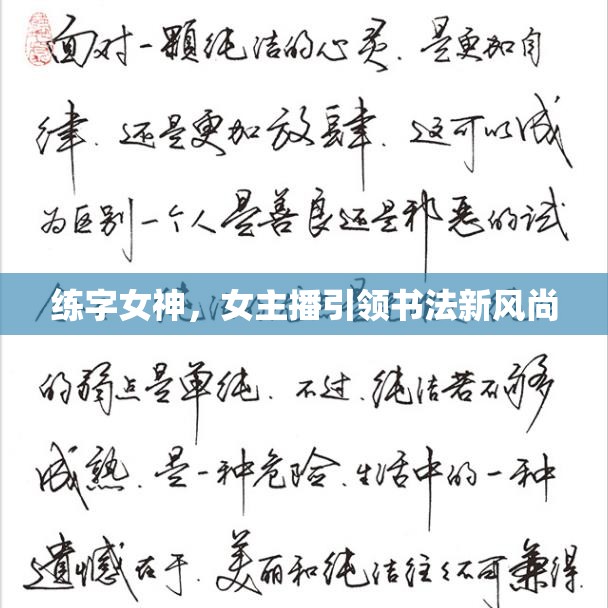 面对一颗纯洁的心灵.是更加自
律.还是更加放肆.这可以成
为区别一个人是善良还是邪恶的试
练字女神，女主播引领书法新风尚
的弱点是单纯.不过.纯洁若不够
成熟.是一种危险.生活中的一种
遗憾在于.美丽和纯洁往往不可兼得